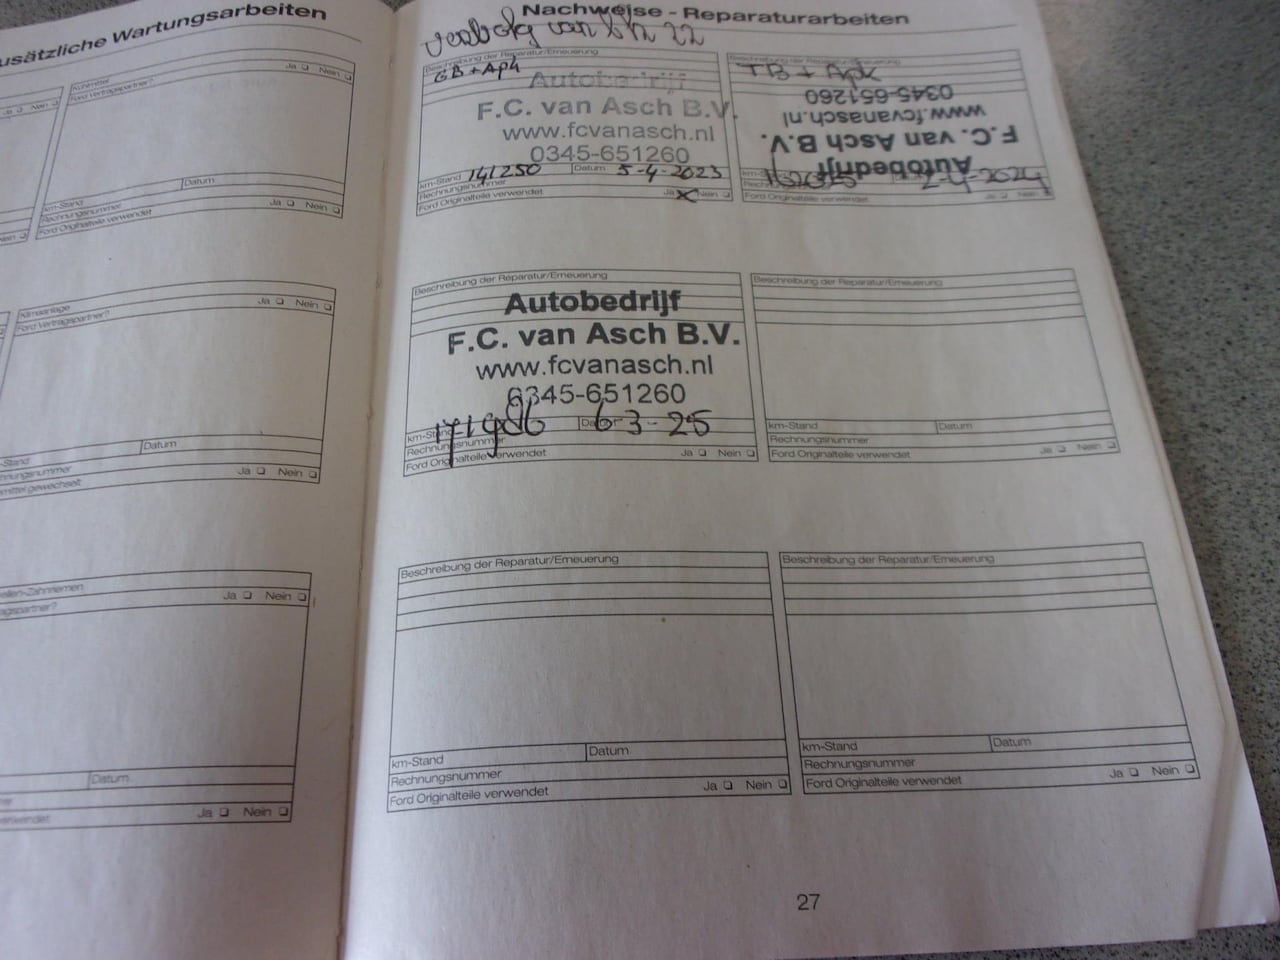 usätzliche Wartungsarbeiten
Ja ❏ Nein ❏
Kühlmittel
Ford Vertragspartner?
Ja ❏ Nein ❏
km-Stand
Datum
Rechnungsnummer
Ford Originalteile verwendet
Ja ❏ Nein ❏
Klimaanlage
Ja ❏ Nein ❏
Ford Vertragspartner?
-Stand
Datum
hnungsnummer
mittel gewechselt
Ja ❏ Nein ❏
ellen-Zahnriemen
Ja ❏ Nein ❏
agspartner?
Datum
Ja ❏ Nein ❏
Nachweise - Reparaturarbeiten
van 22
Beschreibung der Reparatur/Erneuerung
GB + Apk
Autobedrijf
F.C. van Asch B.V.
www.fcvanasch.nl
0345-651260
km-Stand 141250 Datum 5-4-2023
Rechnungsnummer
Ford Originalteile verwendet Ja ❏ Nein ❏
Beschreibung der Reparatur/Erneuerung
TB + Apk
Autobedrijf
F.C. van Asch B.V.
www.fcvanasch.nl
0345-651260
2-4-2024
Ford Originalteile verwendet Ja ❏ Nein ❏
Beschreibung der Reparatur/Erneuerung
Autobedrijf
F.C. van Asch B.V.
www.fcvanasch.nl
0345-651260
km-Stand Datum 6-3-25
Rechnungsnummer
Ford Originalteile verwendet Ja ❏ Nein ❏
Beschreibung der Reparatur/Erneuerung
km-Stand Datum
Rechnungsnummer
Ford Originalteile verwendet Ja ❏ Nein ❏
Beschreibung der Reparatur/Erneuerung
km-Stand Datum
Rechnungsnummer
Ford Originalteile verwendet Ja ❏ Nein ❏
Beschreibung der Reparatur/Erneuerung
km-Stand Datum
Rechnungsnummer
Ford Originalteile verwendet Ja ❏ Nein ❏
27